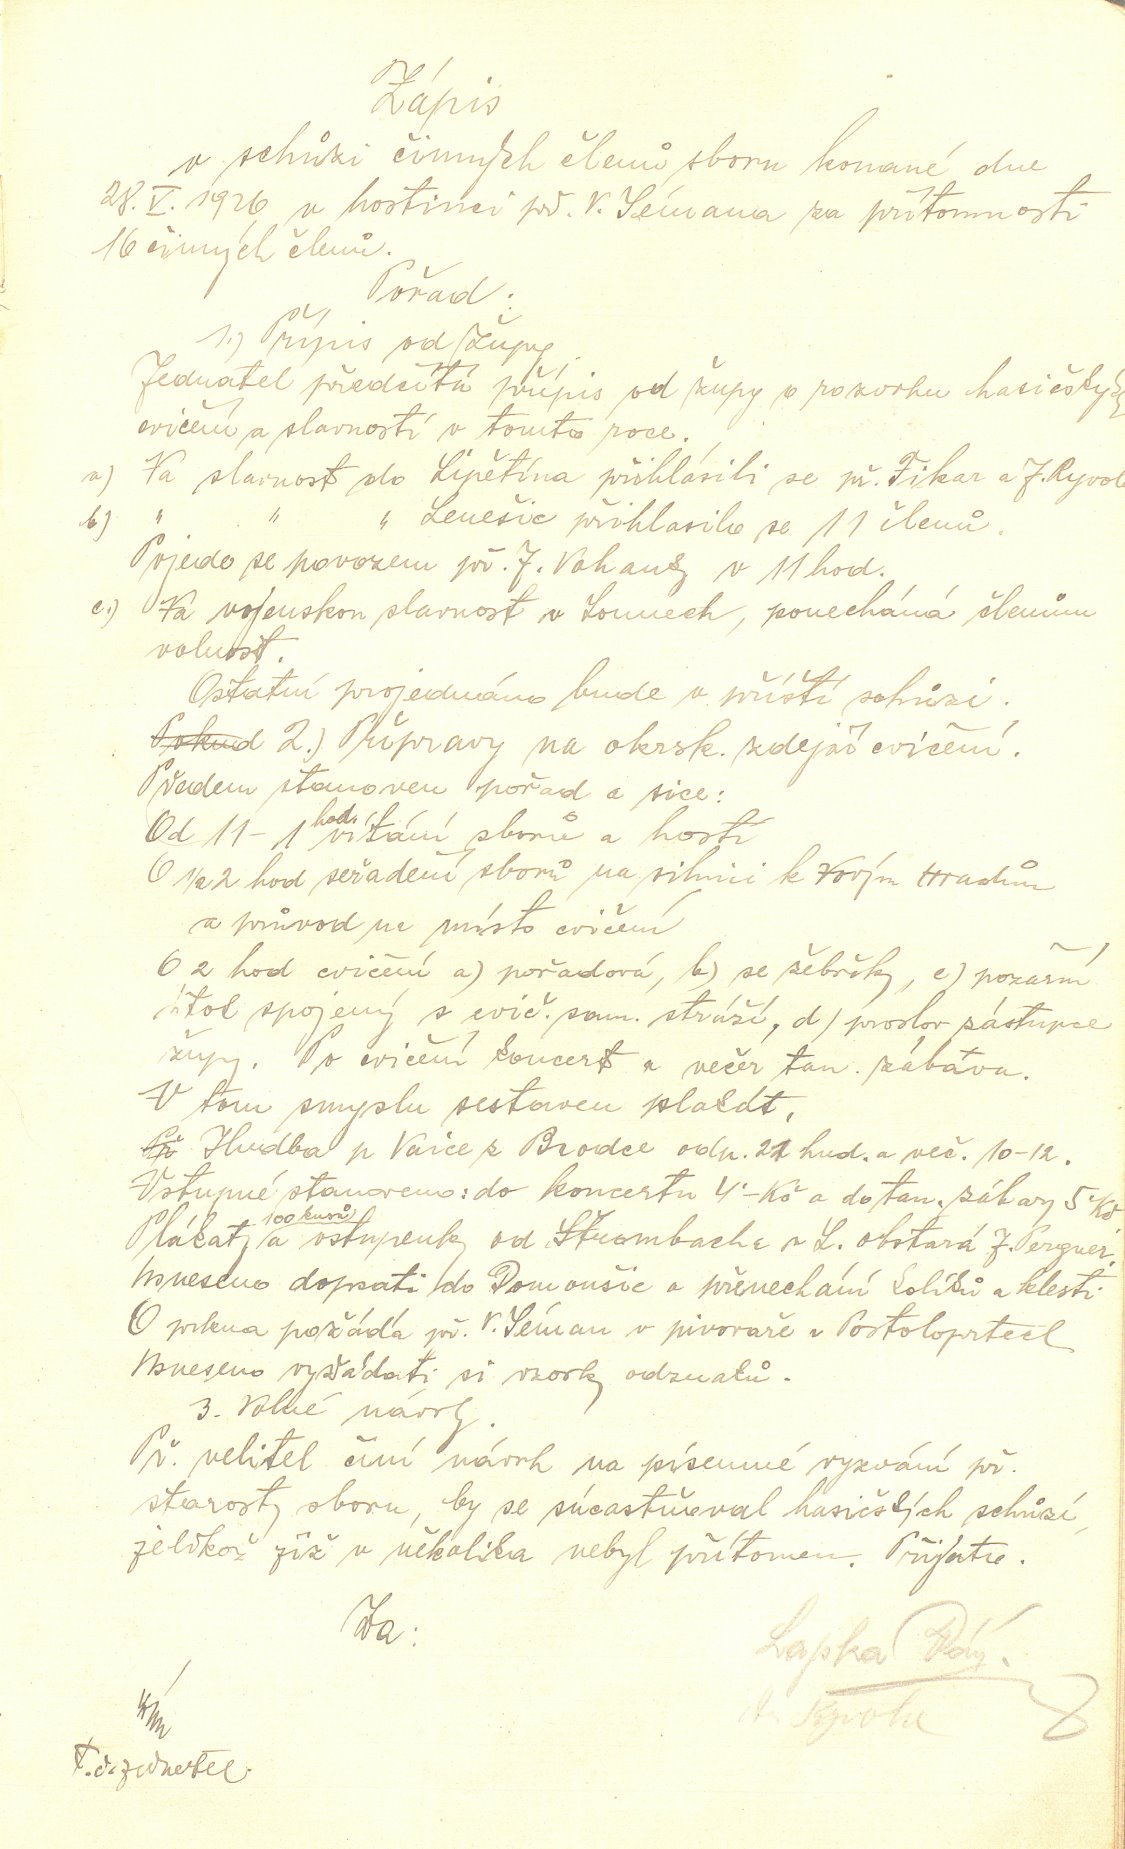 Zápis
v schůzi činných členů sboru konané dne
28. V. 1926 v hostinci př. V. Sémana za přítomnosti
16 činných členů.
Pořad:
1.) Přípis od Župy
Jednatel předčítá přípis od župy o rozvrhu hasičských
cvičení a slavností v tomto roce.
a) Na slavnost do Lipětína přihlásili se př. Fikar a J. Ryvola
b) " " " Lenešic přihlásilo se 11 členů.
Pojede se povozem př. J. Vohanky v 11 hod.
c.) Na vojenskou slavnost v Lounech, ponechána členům
volnost.
Ostatní projednáno bude v příští schůzi.
Pokud 2.) Přípravy na okrsk. zdejší cvičení.
Předem stanoven pořad a sice:
Od 11 – 1 hod. vítání sborů a hostí
O 1/2 2 hod seřadění sborů na silnici k Novým Hradům
a průvod na místo cvičení
O 2 hod cvičení a) pořadová, b) se žebříky, c) požární
útok spojený s cvič. sam. stráží, d) proslov zástupce
župy. Po cvičení koncert a večer tan. zábava.
V tom smyslu sestaven plakát.
Př Hudba p Vaice z Brodce odp. 21 hud. a več. 10-12.
Vstupné stanoveno: do koncertu 4·– Kč a do tan. zábavy 5 Kč
100 kusů
Plákaty a vstupenky od Štrombacha v L. obstará J. Pergner.
Usneseno dopsati do Domoušic o přenechání kolíků a klestí
O prkna požádá př. V. Séman v pivovaře v Postoloprtech
Usneseno vyžádati si vzorky odznaků.
3. Volné návrhy.
Př. velitel činí návrh na písemné vyzvání př.
starosty sboru, by se súčastňoval hasičských schůzí,
jelikož již v několika nebyl přítomen. Přijato.
Za:
Lapka
Ryvola
t. č. jednatel.